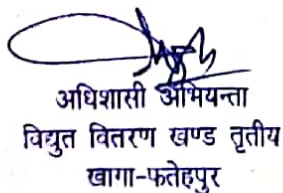 अधिशासी अभियन्ता
विद्युत वितरण खण्ड तृतीय
खागा-फतेहपुर